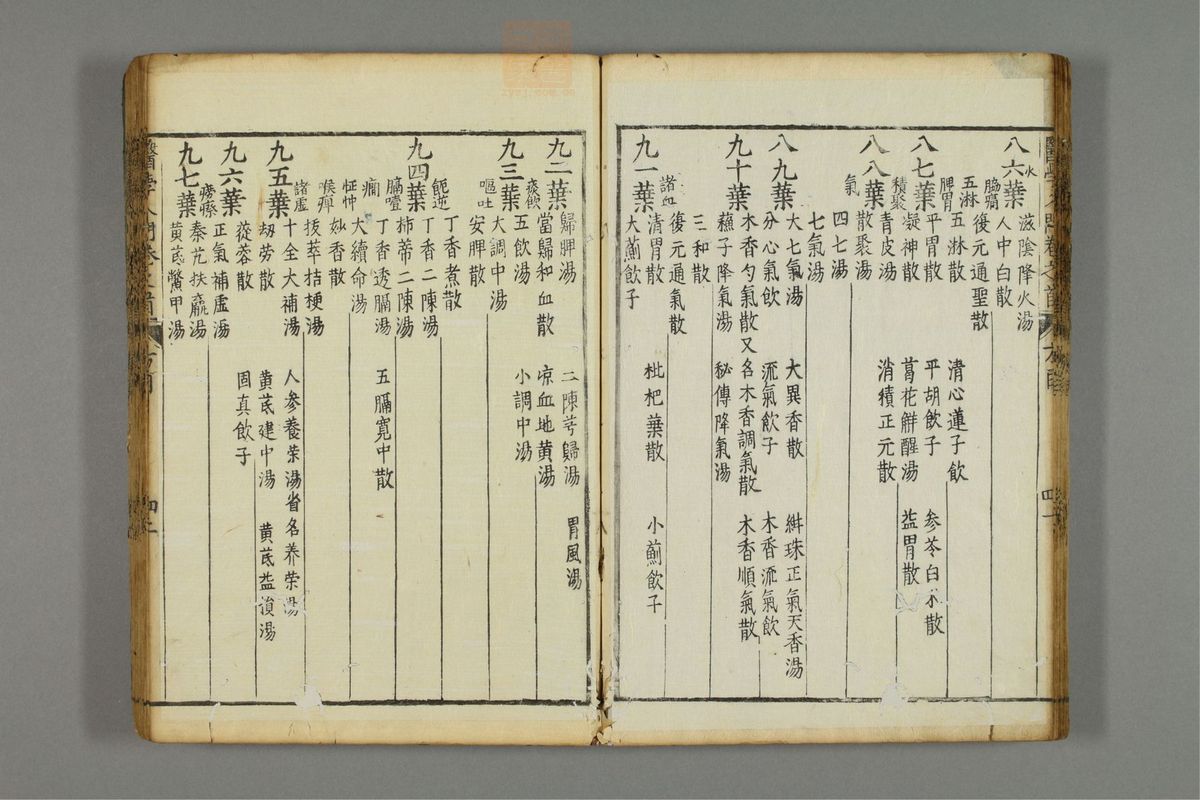 八六葉 滋陰降火湯
水 人中白散
腸癰 復元通聖散
五淋 五淋散 清心蓮子飲
八七葉 脾胃 平胃散 平胡飲子 參苓白朮散
積聚 凝神散 葛花解醒湯 益胃散
青皮湯 消積正元散
八八葉 散聚湯
氣 四七湯
七氣湯
八九葉 大七氣湯 大異香散 絣珠正氣天香湯
分心氣飲 流氣飲子 木香流氣飲
九十葉 木香勻氣散又名木香調氣散 木香順氣散
蘓子降氣湯 秘傳降氣湯
三和散
諸血 後元通氣散
九一葉 清胃散 枇杷葉散 小薊飲子
大薊飲子
九二葉 歸脾湯 二陳芎歸湯 胃風湯
當歸和血散 凉血地黄湯
九三葉 痰飲 五飲湯 小調中湯
嘔吐 大調中湯
安脾散
丁香煮散
九四葉 呃逆 丁香二陳湯
膈噎 柿蒂二陳湯
癇 丁香透膈湯 五膈寬中散
怔忡 大續命湯
喉痹 妙香散
拔萃桔梗湯
九五葉 諸虛 十全大補湯 人參養榮湯省名養榮湯
刼勞散 黄芪建中湯 黄芪益損湯
九六葉 蓯蓉散 固真飲子
正氣補虛湯
癆瘵 秦艽扶羸湯
九七葉 黄芪鱉甲湯
四十一